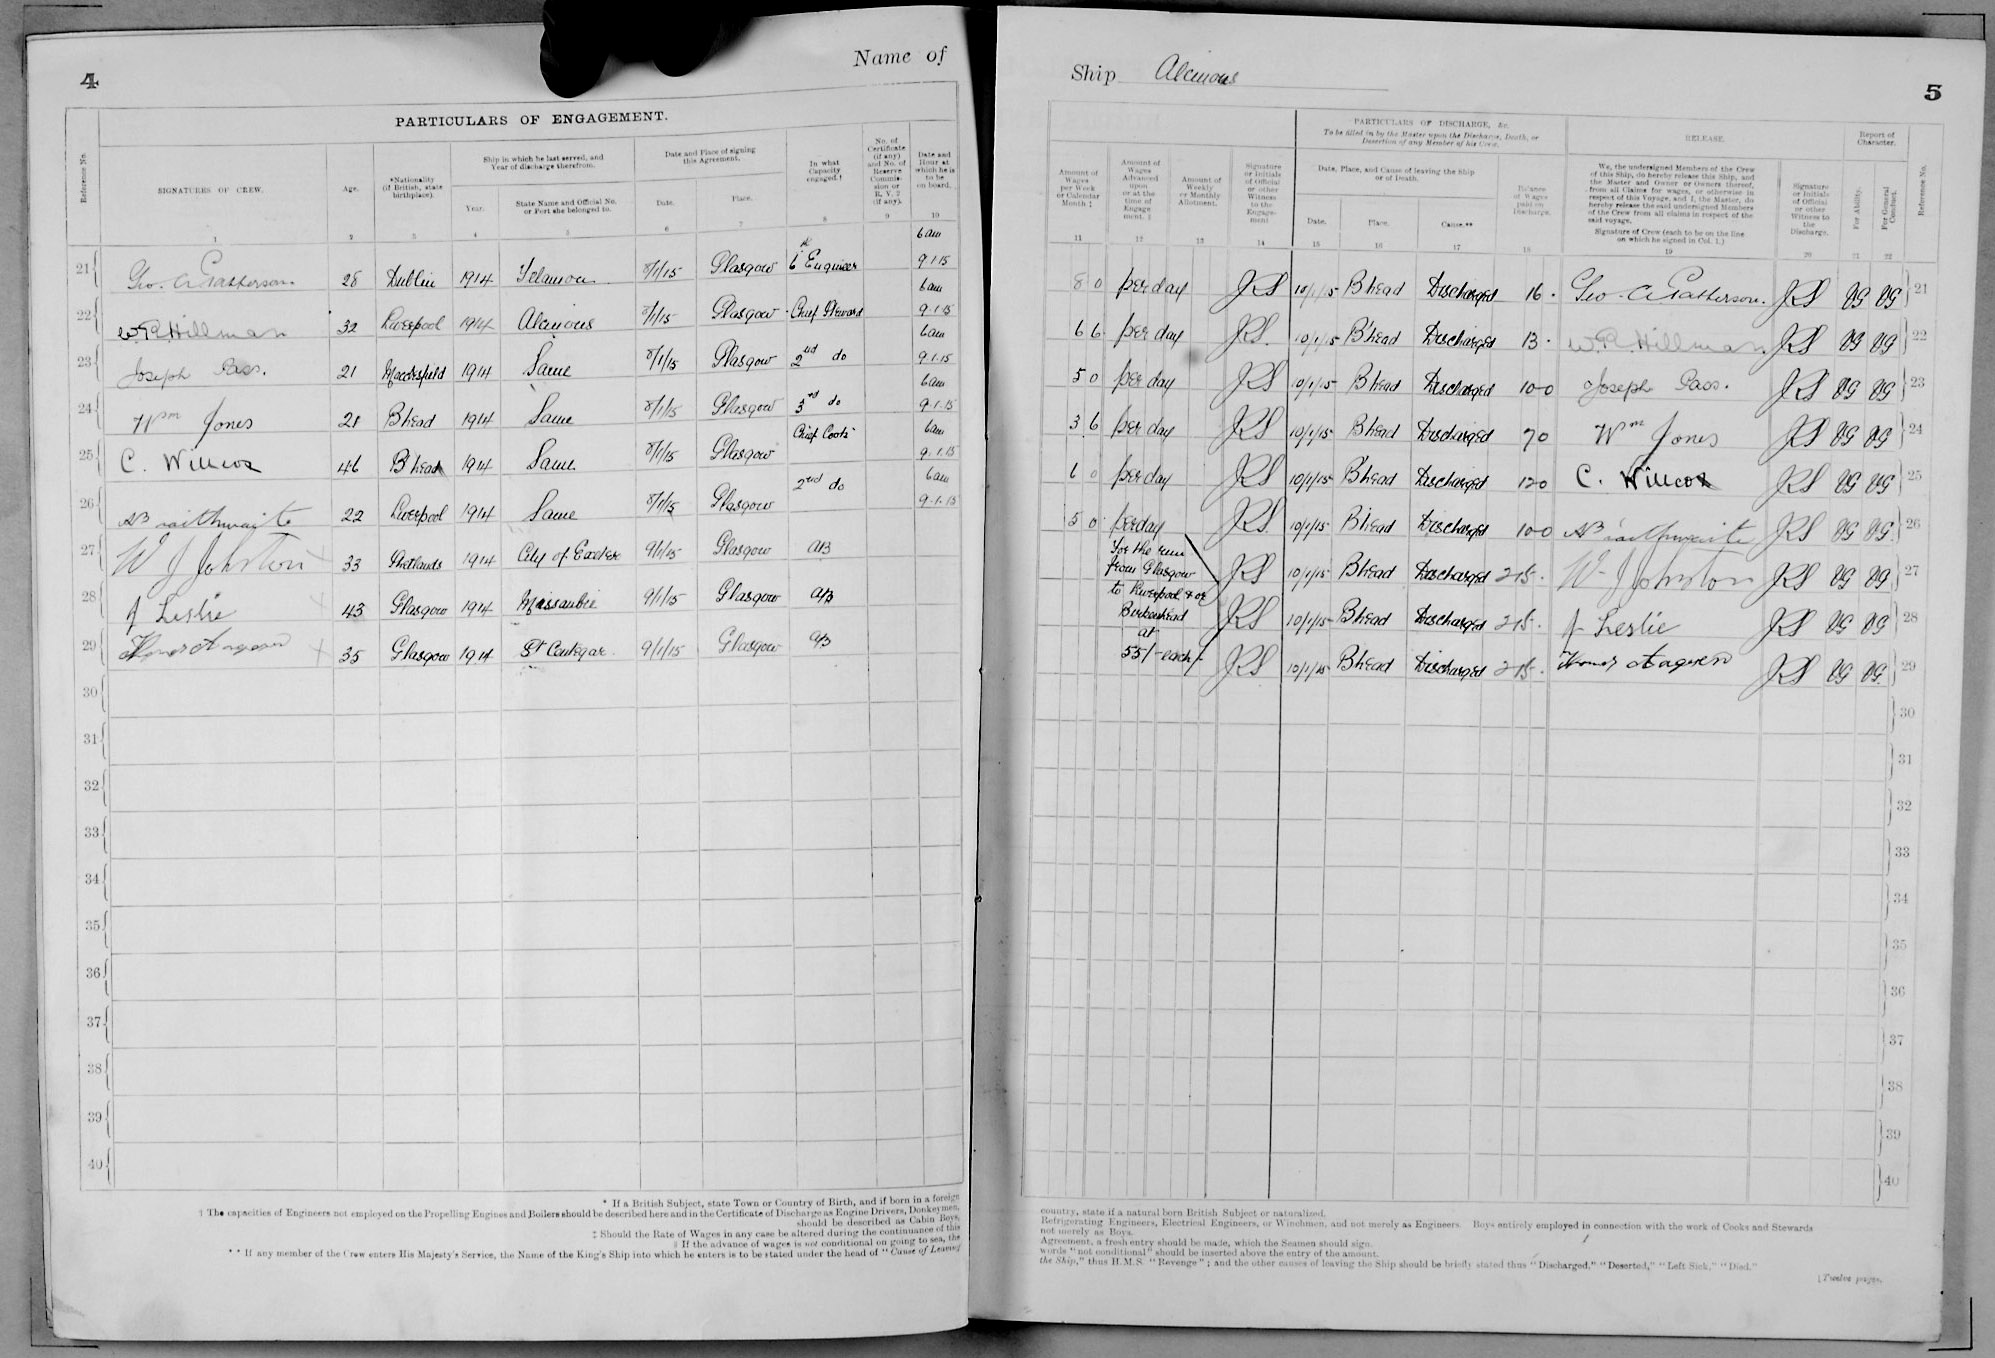 4
Name of
PARTICULARS OF ENGAGEMENT.
Reference No.
SIGNATURES OF CREW.
Age.
*Nationality
(if British, state
birthplace).
Ship in which he last served, and
Year of discharge therefrom.
Year.
State Name and Official No.
or Port she belonged to.
Date and Place of signing
this Agreement.
Date.
Place.
In what
Capacity
engaged.†
No. of
Certificate
(if any)
and No. of
Reserve
Commis-
sion or
R. V. 2
(if any).
Date and
Hour at
which he is
to be
on board.
1 2 3 4 5 6 7 8 9 10
21 Geo. A Patterson 28 Dublin 1914 Telamon 8/1/15 Glasgow 6th Engineer 6am 9.1.15
22 W R Hillman 32 Liverpool 1914 Alcinous 8/1/15 Glasgow Chief Steward 6am 9.1.15
23 Joseph Pass. 21 Macclesfield 1914 Same 8/1/15 Glasgow 2nd do 6am 9.1.15
24 Wm Jones 21 B'head 1914 Same 8/1/15 Glasgow 3rd do 6am 9.1.15
25 C. Willcox 46 B'head 1914 Same 8/1/15 Glasgow Chief Cook 6am 9.1.15
26 Braithwaite 22 Liverpool 1914 Same 8/1/15 Glasgow 2nd do 6am 9.1.15
27 W J Johnston 33 Shetlands 1914 City of Exeter 9/1/15 Glasgow AB
28 J Leslie 43 Glasgow 1914 9/1/15 Glasgow AB
29 35 Glasgow 1914 9/1/15 Glasgow AB
30
31
32
33
34
35
36
37
38
39
40
* If a British Subject, state Town or Country of Birth, and if born in a foreign
† The capacities of Engineers not employed on the Propelling Engines and Boilers should be described here and in the Certificate of Discharge as Engine Drivers, Donkeymen,
should be described as Cabin Boys,
‡ Should the Rate of Wages in any case be altered during the continuance of this
§ If the advance of wages is not conditional on going to sea, the
** If any member of the Crew enters His Majesty's Service, the Name of the King's Ship into which he enters is to be stated under the head of "Cause of Leaving
Ship Alcinous
5
Amount of
Wages
per Week
or Calendar
Month ‡
Amount of
Wages
Advanced
upon
or at the
time of
Engage
ment. §
Amount of
Weekly
or Monthly
Allotment.
Signature
or Initials
of Official
or other
Witness
to the
Engage-
ment
PARTICULARS OF DISCHARGE, &c.
To be filled in by the Master upon the Discharge, Death, or
Desertion of any Member of his Crew.
Date, Place, and Cause of leaving the Ship
or of Death.
Date.
Place.
Cause.**
Balance
of Wages
paid on
Discharge.
RELEASE.
We, the undersigned Members of the Crew
of this Ship, do hereby release this Ship, and
the Master and Owner or Owners thereof,
from all Claims for wages, or otherwise in
respect of this Voyage; and I, the Master, do
hereby release the said undersigned Members
of the Crew from all claims in respect of the
said voyage.
Signature of Crew (each to be on the line
on which he signed in Col. 1.)
Signature
or Initials
of Official
or other
Witness to
the
Discharge.
Report of
Character.
For Ability.
For General
Conduct.
Reference No.
11 12 13 14 15 16 17 18 19 20 21 22
8 0 per day JRS 10/1/15 B'head Discharged 16 . Geo. A Patterson. JRS VG VG 21
6 6 per day JRS. 10/1/15 B'head Discharged 13 . W R Hillman. JRS VG VG 22
5 0 per day JRS 10/1/15 B'head Discharged 10 0 Joseph Pass. JRS VG VG 23
3 6 per day JRS 10/1/15 B'head Discharged 7 0 Wm Jones JRS VG VG 24
6 0 per day JRS 10/1/15 B'head Discharged 12 0 C. Willcox JRS VG VG 25
5 0 per day JRS. 10/1/15 B'head Discharged 10 0 Braithwaite JRS VG VG 26
for the run
from Glasgow
to Liverpool & or
Birkenhead
at
55/- each
JRS 10/1/15 B'head Discharged 2 15 . W J Johnston JRS VG VG 27
JRS 10/1/15 B'head Discharged 2 15 . J Leslie JRS VG VG 28
JRS 10/1/15 B'head Discharged 2 15 . JRS VG VG 29
30
31
32
33
34
35
36
37
38
39
40
country, state if a natural born British Subject or naturalized.
Refrigerating Engineers, Electrical Engineers, or Winchmen, and not merely as Engineers. Boys entirely employed in connection with the work of Cooks and Stewards
not merely as Boys.
Agreement, a fresh entry should be made, which the Seamen should sign.
words "not conditional" should be inserted above the entry of the amount.
the Ship," thus H.M.S. "Revenge"; and the other causes of leaving the Ship should be briefly stated thus "Discharged," "Deserted," "Left Sick," "Died."
[Twelve pages.